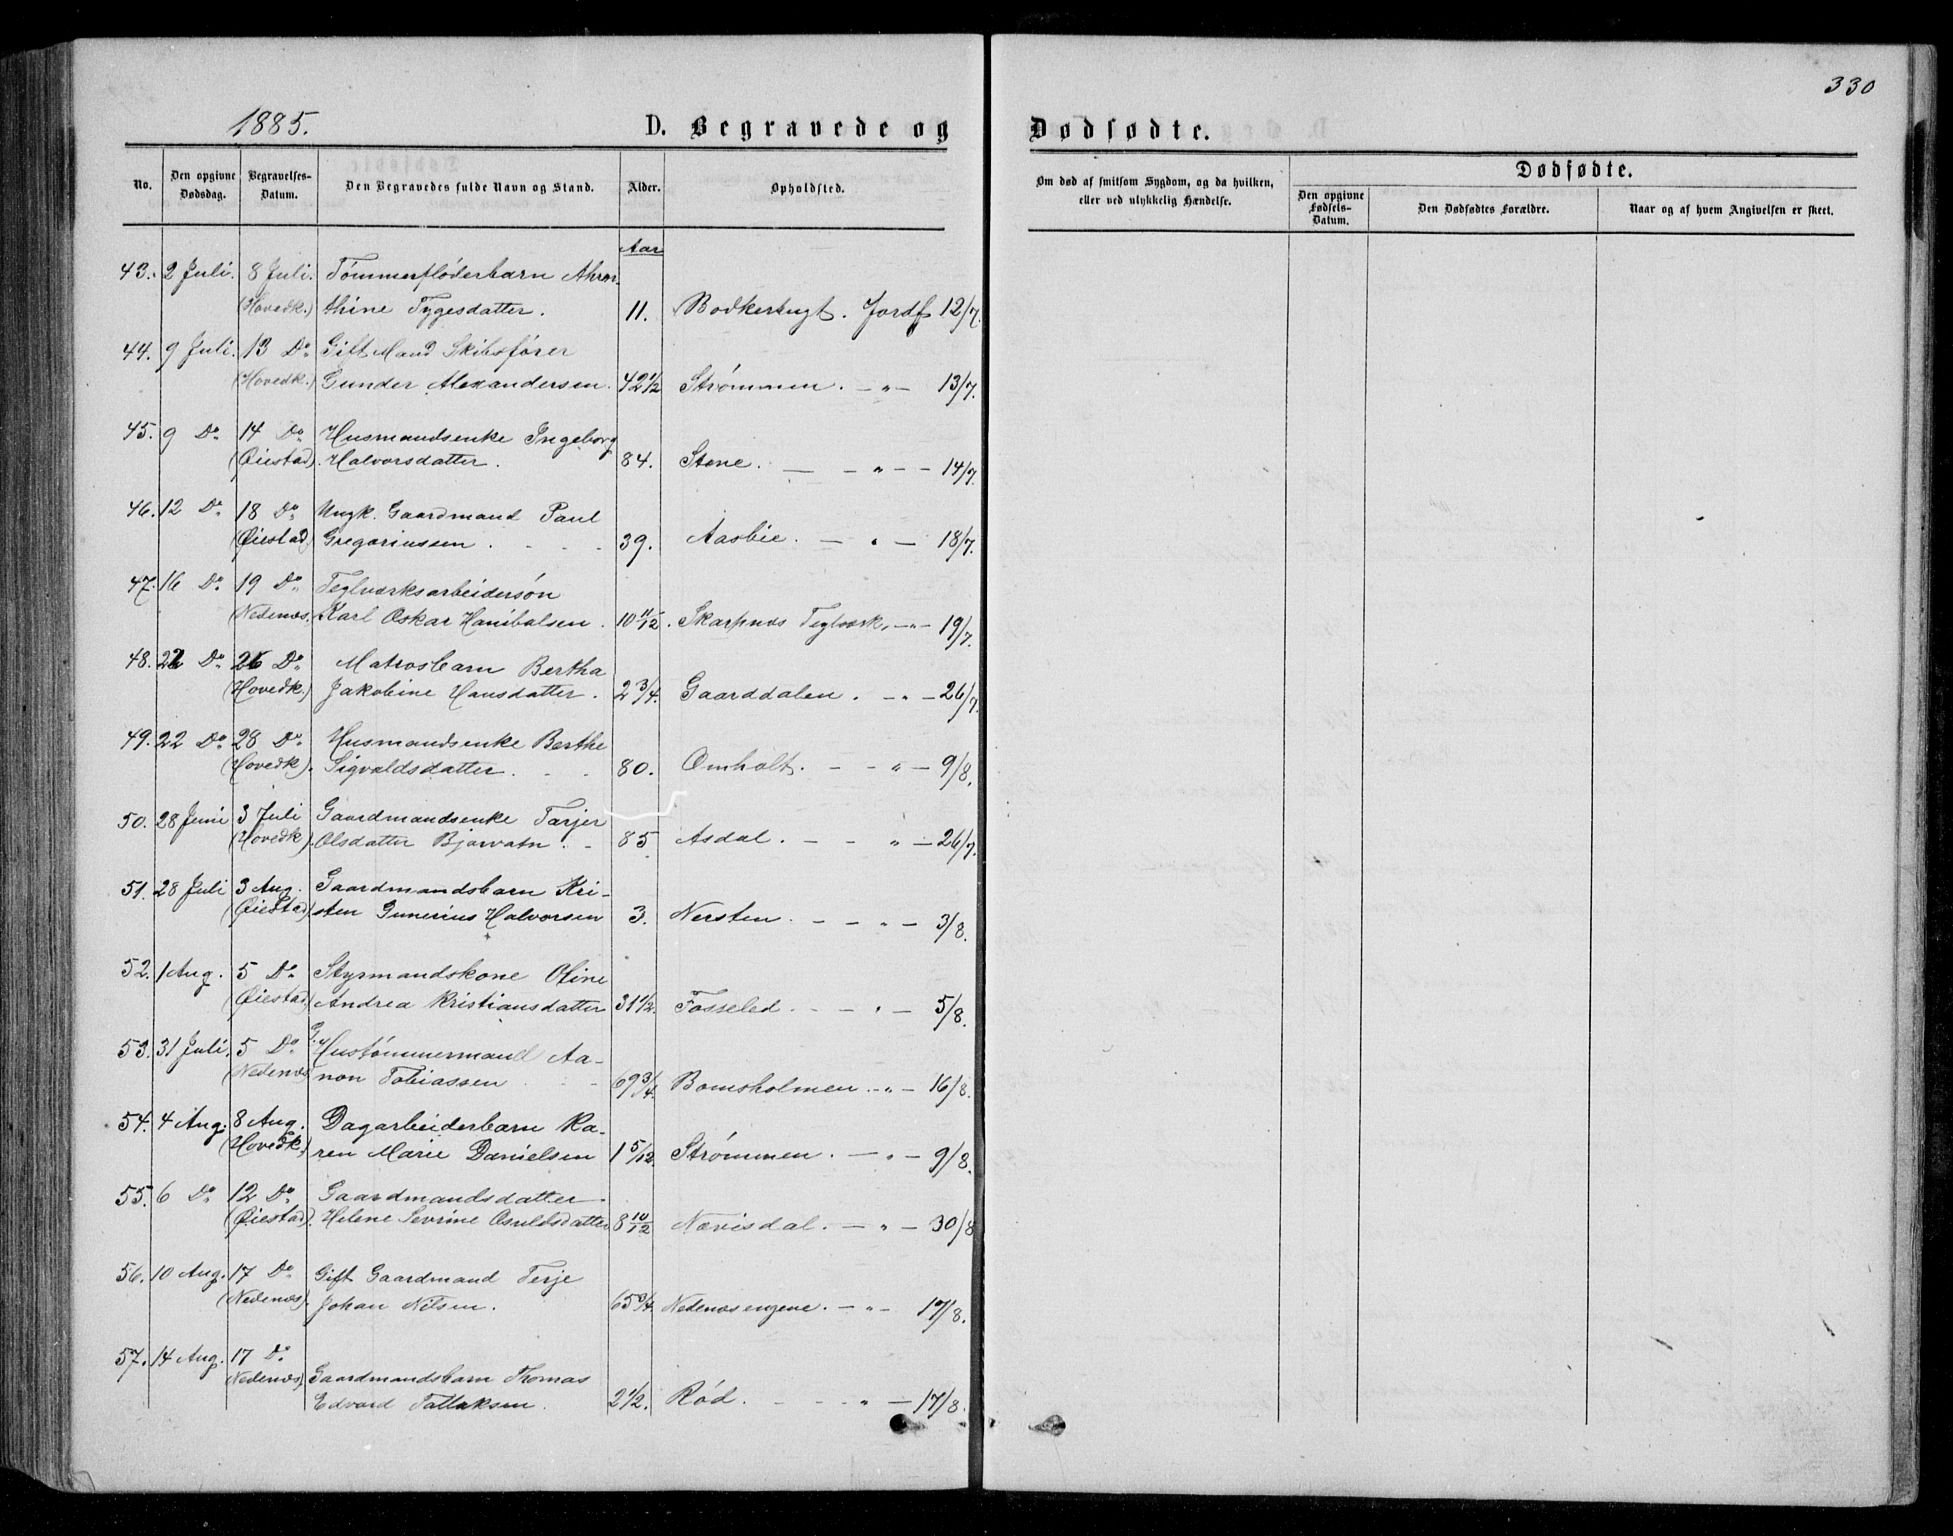 330
1885.
D. Begravede og Dødfødte.
No.
Den opgivne Dødsdag.
Begravelses-Datum.
Den Begravedes fulde Navn og Stand.
Alder.
Opholdsted.
Om død af smitsom Sygdom, og da hvilken, eller ved ulykkelig Hændelse.
Dødfødte.
Den opgivne Fødsels-Datum.
Den Dødfødtes Forældre.
Naar og af hvem Angivelsen er skeet.
Aar
43. 2 Juli. 8 Juli. Tømmerfløderbarn Ahren-
(Hovedk.) thine Tygesdatter. 11. Bodkerbugt. Jordf 12/7.
44. 9 Juli. 13 Do Gift Mand Skibsfører
(Hovedk.) Gunder Alexandersen. 42 1/2 Strømmen. — " — 13/7.
45. 9 Do 14 Do Husmandsenke Ingeborg
(Øiestad). Halvorsdatter. 84. Stene. — — " — 14/7.
46. 12 Do 18 Do Ungk. Gaardmand Paul
(Øiestad) Gregoriussen. 39. Aasbie. — " — 18/7.
47. 16 Do 19 Do Teglværksarbeidersøn
(Nedenæs. Karl Oskar Hanibalsen. 10 11/12. Skarpnæs Teglværk, — " — 19/7.
48. 22 Do 26 Do Matrosbarn Bertha
(Hovedk.) Jakobine Hansdatter. 2 3/4. Gaarddalen. — " — 26/7.
49. 22 Do 28 Do Husmandsenke Berthe
(Hovedk). Sigvaldsdatter. 80. Omholt. — — " — 9/8.
50. 28 Juni 3 Juli Gaardmandsenke Tarjer
(Hovedk). Olsdatter Bjorvatn. - 85 Asdal. — — " — 26/7.
51. 28 Juli 3 Aug. Gaardmandsbarn Kri-
(Øiestad) sten Gunerius Halvorsen 3. Nersten. — — " — 3/8.
52. 1 Aug. 5 Do Styrmandskone Ofine
(Øiestad.) Andrea Kristiansdatter 31 1/2. Fosseled. — — " — 5/8.
53. 31 Juli. 5 Do G. Hustømmermand Aa-
(Nedenæs) non Tobiassen 69 3/4. Bomsholmen. — " — 16/8.
54. 4 Aug. 8 Aug. Dagarbeiderbarn Ka-
(Hovedk.) ren Marie Danielsen 1 5/12. Strømmen. — " — 9/8.
55. 6 Do 12 Do Gaardmandsdatter
(Øiestad). Helene Sevrine Osuldsdatter 8 10/12 Nævisdal. — " — 30/8
56. 10 Aug. 17 Do Gift Gaardmand Terje
(Nedenæs). Johan Nilsen. 65 3/4. Nedenæsengene. — " — 17/8.
57. 14 Aug. 17 Do
Nedenæs) Gaardmandsbarn Thomas
Edvard Tallaksen. 2 1/2. Rød. — — " — 17/8.